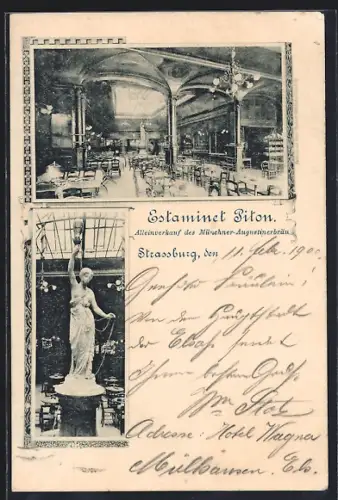 Estaminet Piton.
Alleinverkauf des Münchner-Augustinerbräu
Strassburg, den 11. Febr. 190
Geehrtes Fräulein!
Von der Hauptstadt
der Elsaß sendet
Ihnen besten Gruß
Adresse: Hotel Wagner
Mülhausen, Els.